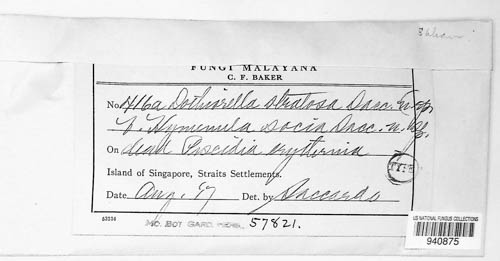 FUNGI MALAYANA
C. F. BAKER
No. 416a Dothiorella stratosa Sacc. n. sp.
& Hymenula socia Sacc. n. sp.
On dead Piscidia erythrina
TYPE
Island of Singapore, Straits Settlements.
Date Aug. 17 Det. by Saccardo
53236
MO. BOT. GARD. HERB. 57821.
US NATIONAL FUNGUS COLLECTIONS
940875